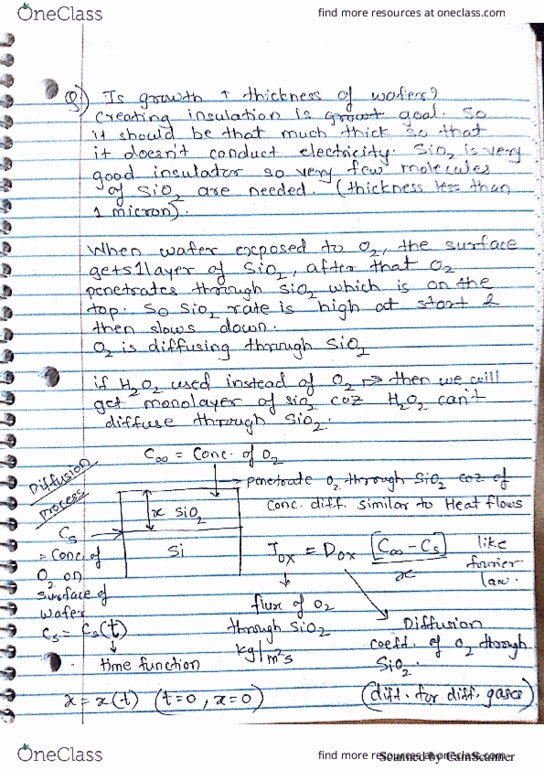 OneClass
find more resources at oneclass.com
Q) Is growth ↑ thickness of wafers?
creating insulation is growt goal. So
it should be that much thick so that
it doesn't conduct electricity. SiO2 is very
good insulator so very few molecules
of SiO2 are needed. (thickness less than
1 micron).
When wafer exposed to O2, the surface
gets 1 layer of SiO2, after that O2
penetrates through SiO2 which is on the
top. So SiO2 rate is high at start &
then slows down.
O2 is diffusing through SiO2
if H2O2 used instead of O2 → then we will
get monolayer of SiO2 coz H2O2 can't
diffuse through SiO2.
C∞ = Conc. of O2
Diffusion
Process
→ penetrate O2 through SiO2 coz of
conc. diff. similar to Heat flows
x SiO2
Si
Cs
= Conc. of
O2 on
surface of
wafer
Cs = Cs(t)
time function
x = x(t) (t=0, x=0)
Jox = Dox [C∞ - Cs] / x
like
fourier
law.
flux of O2
through SiO2
kg/m²s
Diffusion
coeff. of O2 through
SiO2.
(diff. for diff. gases)
OneClass
find more resources at oneclass.com
Scanned by CamScanner